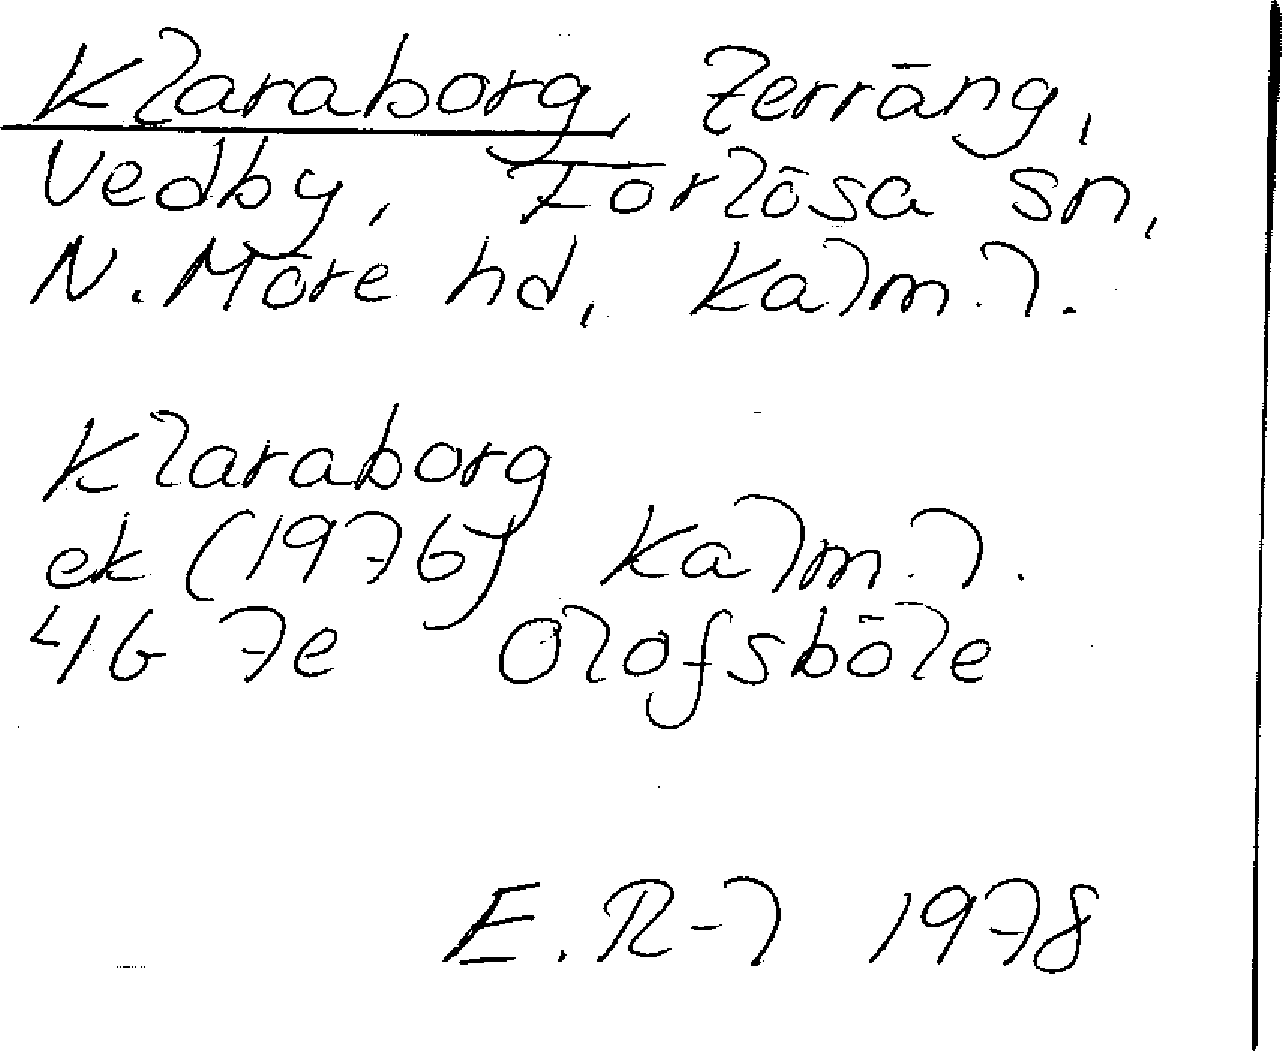 Klaraborg, terräng,
Vedby, Förlösa sn,
N. Möre hd, Kalm. l.
Klaraborg
ek (1976) Kalm. l.
4G 7e Olofsböle
E. R-l 1978